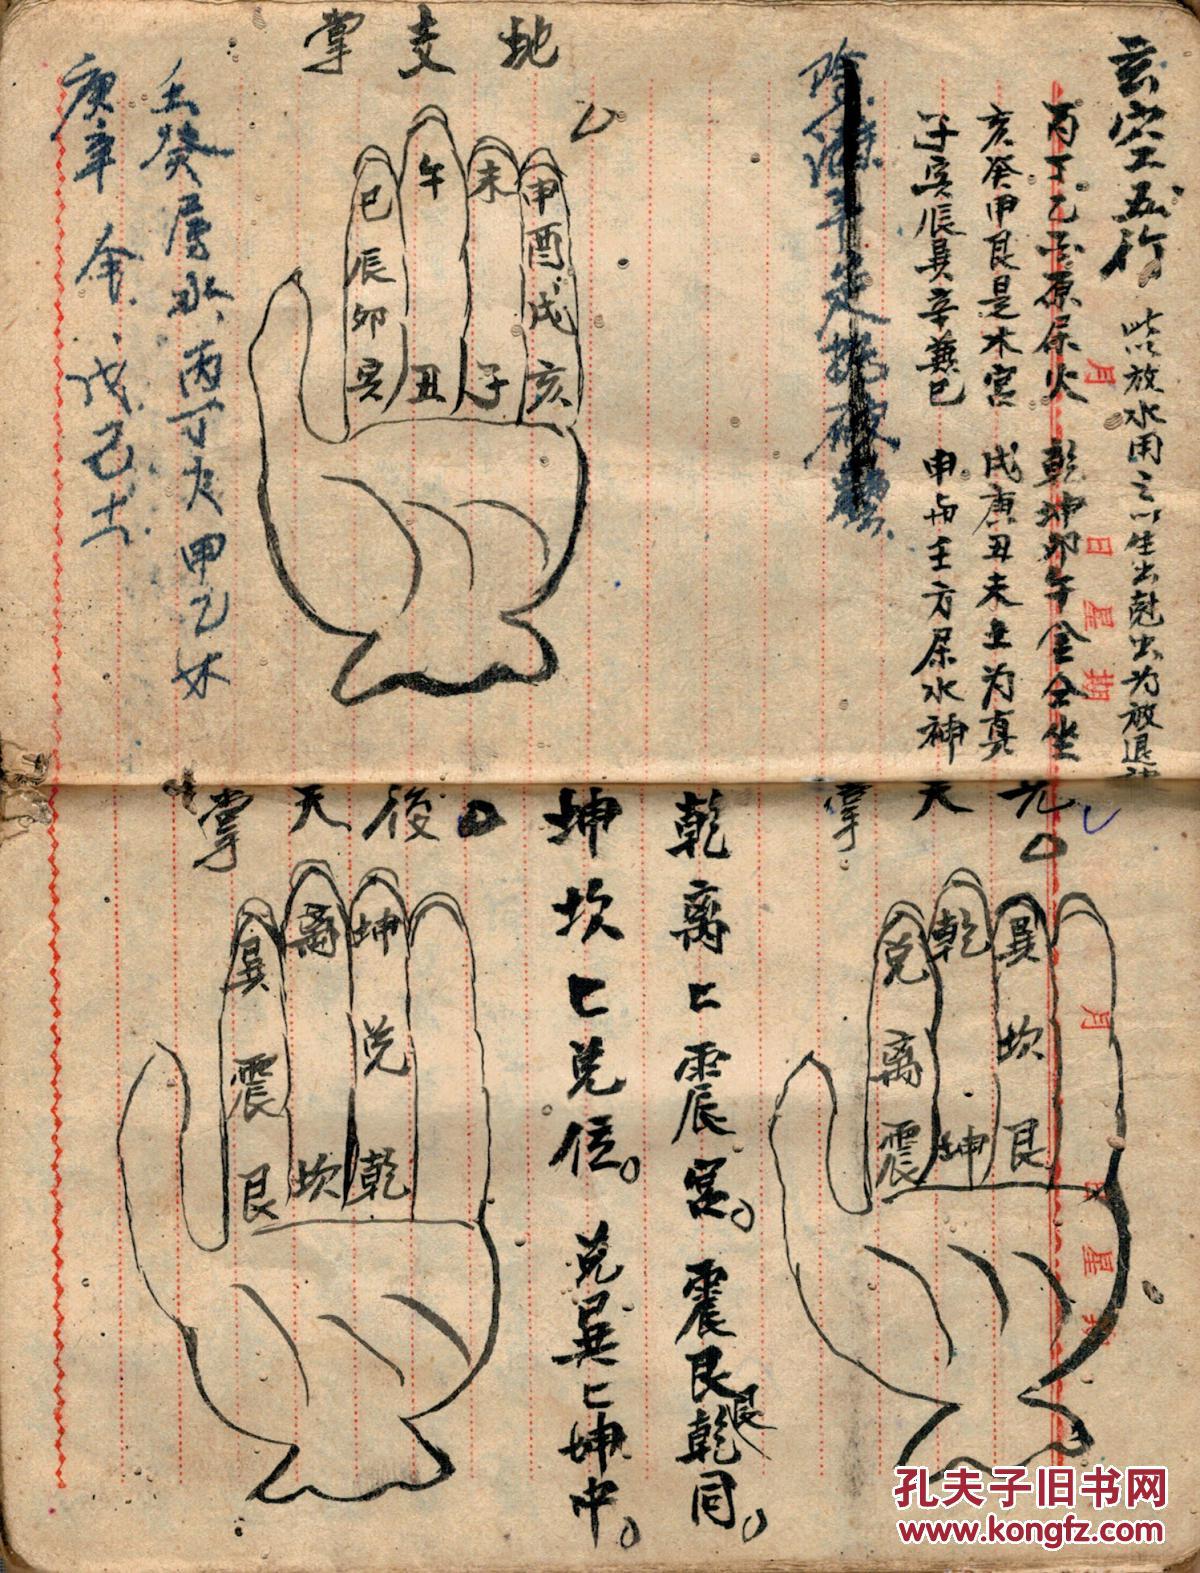 玄空五行 此放水用之以生出尅出为放退神
丙丁乙酉原屬火 乾坤卯午金全坐
亥癸甲艮是木宮 戌庚丑未土为真
子寅辰巽辛兼巳 申与壬方屬水神
地支掌
巳 午 未 申
辰 酉
卯 戌
寅 丑 子 亥
壬癸屬水 丙丁火 甲乙木
庚辛金 戊己土
先天掌
兑 乾 巽
离 坎
震 坤 艮
乾离匕震宮。震艮乾同。
艮
坤坎匕兑位。兑巽匕坤中。
後天掌
巽 离 坤
震 兑
艮 坎 乾
月 日 星期
月 日 星
孔夫子旧书网
www.kongfz.com